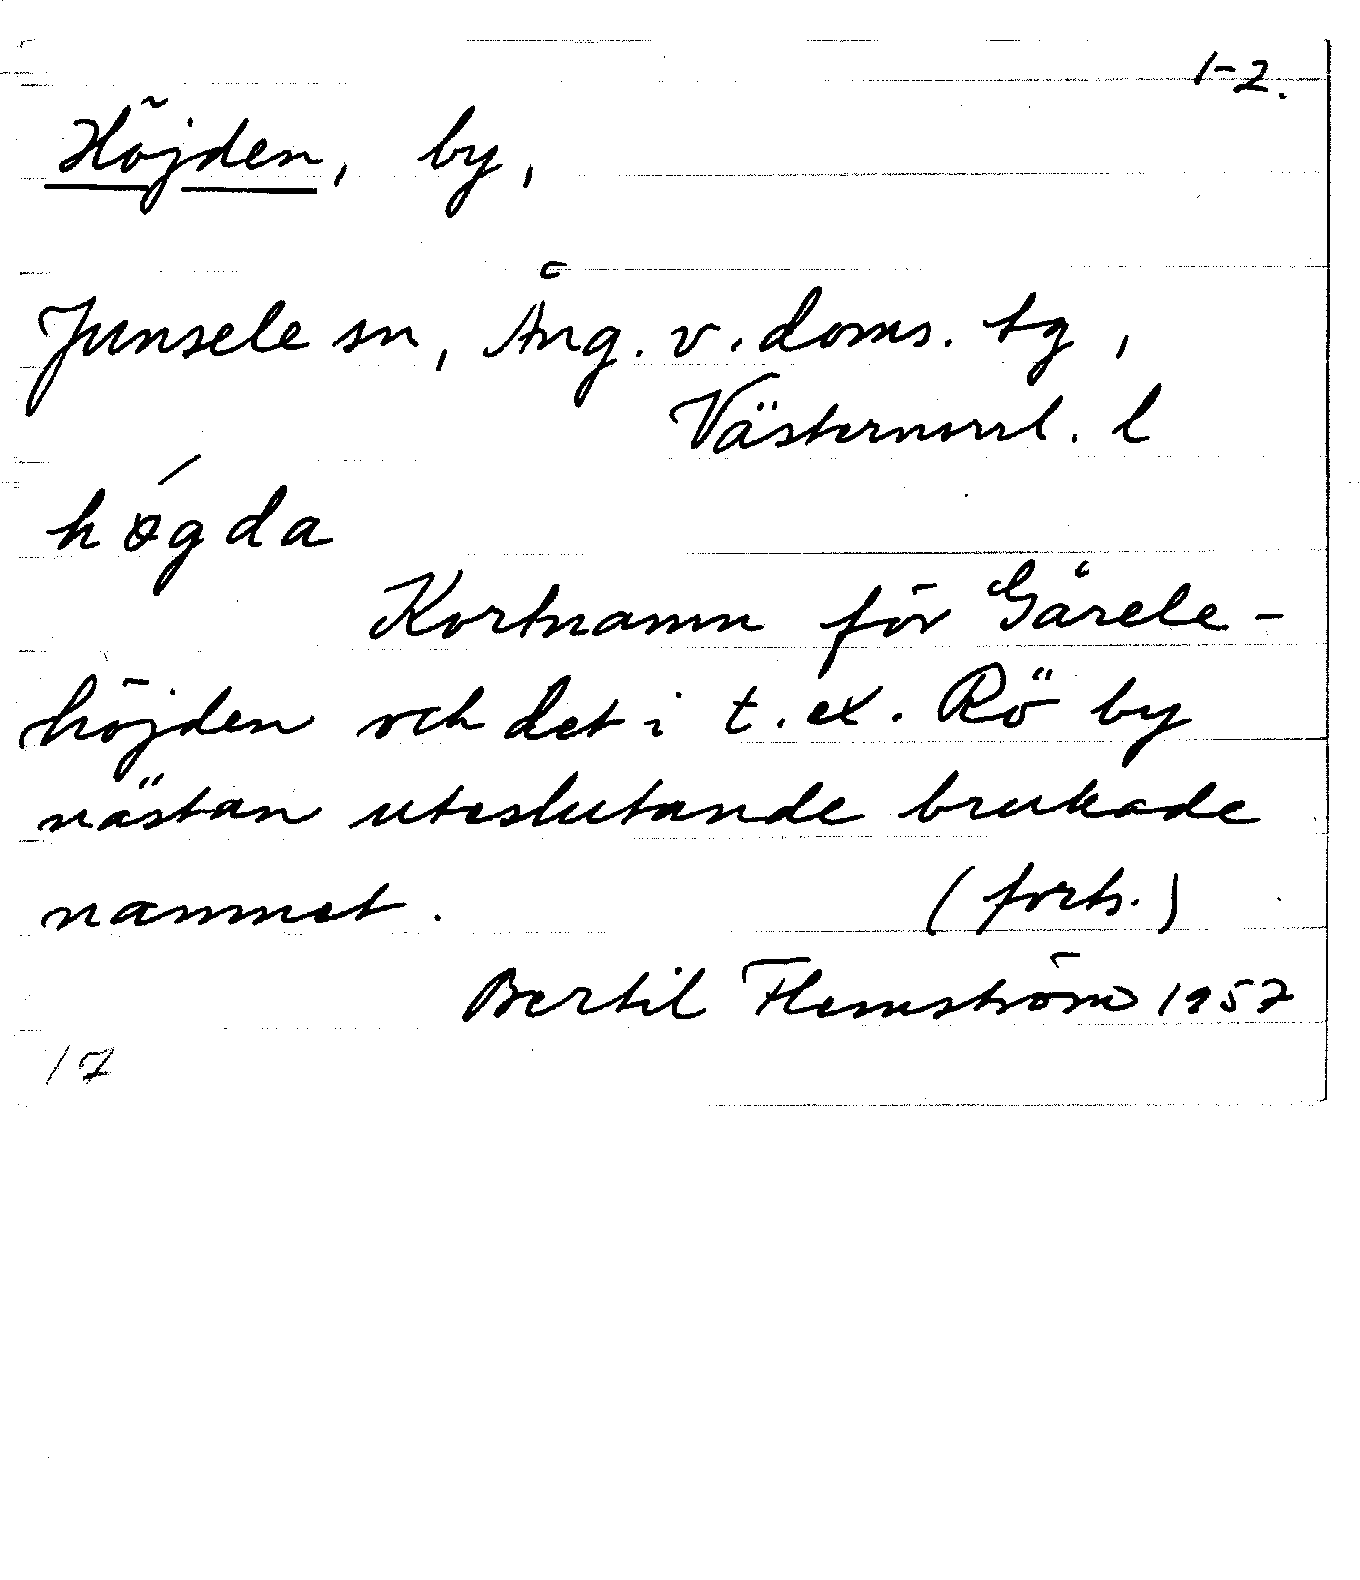 1-2.
Höjden, by,
Junsele sn, Ång. v. doms. tg,
Västernorrl. l
högda
Kortnamn för Gårele-
höjden och det i t. ex. Rö by
nästan uteslutande brukade
namnet. (forts.)
Bertil Flemström 1957
17